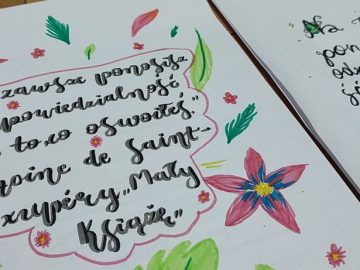 zawsze ponosisz
powiedzialność
to, co oswoiłeś."
toine de Saint-
xupéry „Mały
Książę"